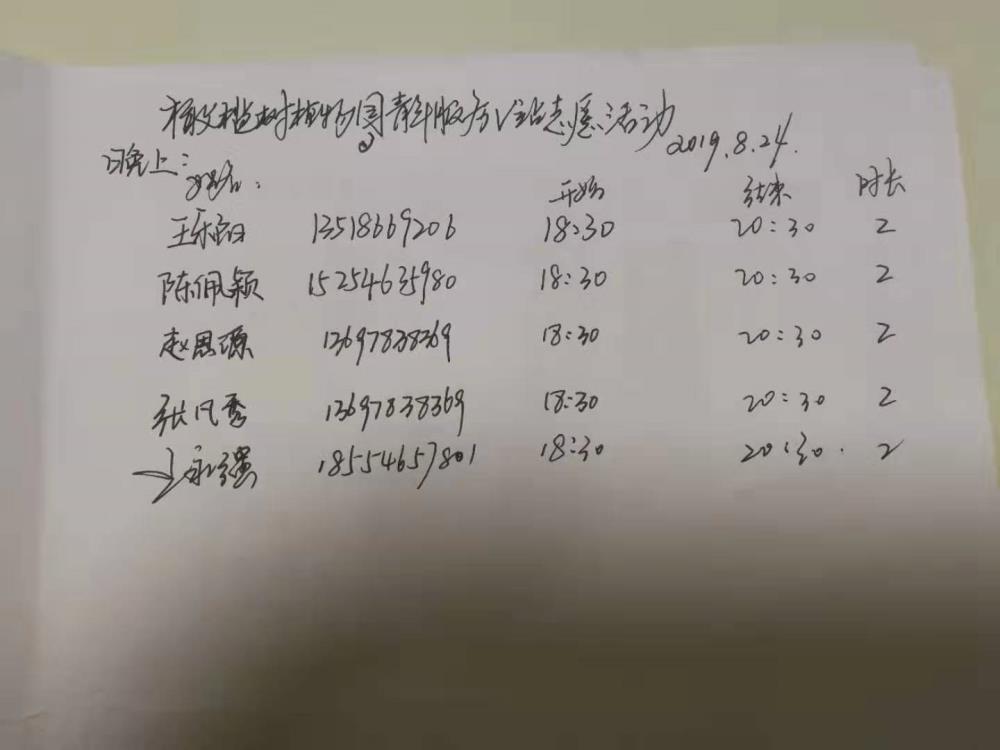 橄榄树植物园青年服务V站志愿活动
2019.8.24.
晚上:
姓名: 开始 结束 时长
13518669206 18:30 20:30 2
陈佩颖 15254635980 18:30 20:30 2
赵思源 13697838369 18:30 20:30 2
张凡秀 13697838369 18:30 20:30 2
永强 18554657801 18:30 20:30. 2